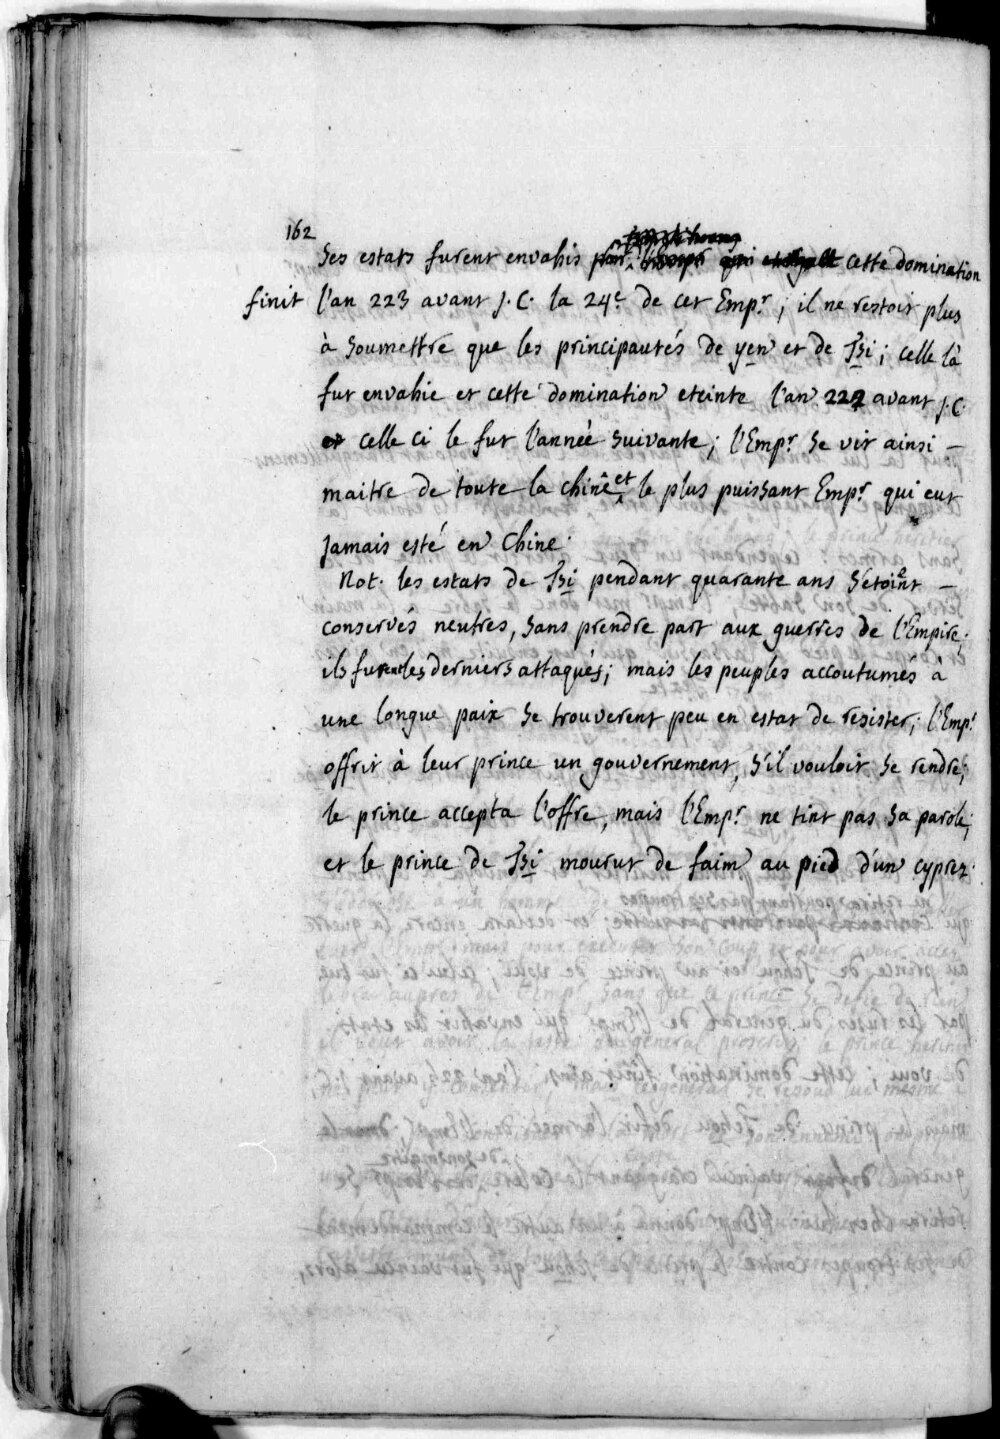 162
Ses estats furent envahis cette domination
finit l'an 223 avant J.C. la 24e de cet Empr; il ne restoit plus
à soumettre que les principautés de yen et de Tsi; celle là
fut envahie et cette domination eteinte l'an 222 avant J.C.
et celle ci le fut l'année suivante; l'Empr se vit ainsi –
maitre de toute la chine et le plus puissant Empr qui eut
jamais esté en Chine.
Not. les estats de Tsi pendant quarante ans s'etoint –
conservés neutres, sans prendre part aux guerres de l'Empire;
ils furent les derniers attaqués; mais les peuples accoutumés à
une longue paix se trouverent peu en estat de resister; l'Empr
offrit à leur prince un gouvernement, s'il vouloit se rendre;
le prince accepta l'offre, mais l'Empr ne tint pas sa parole;
et le prince de Tsi mourut de faim au pied d'un cyprez.